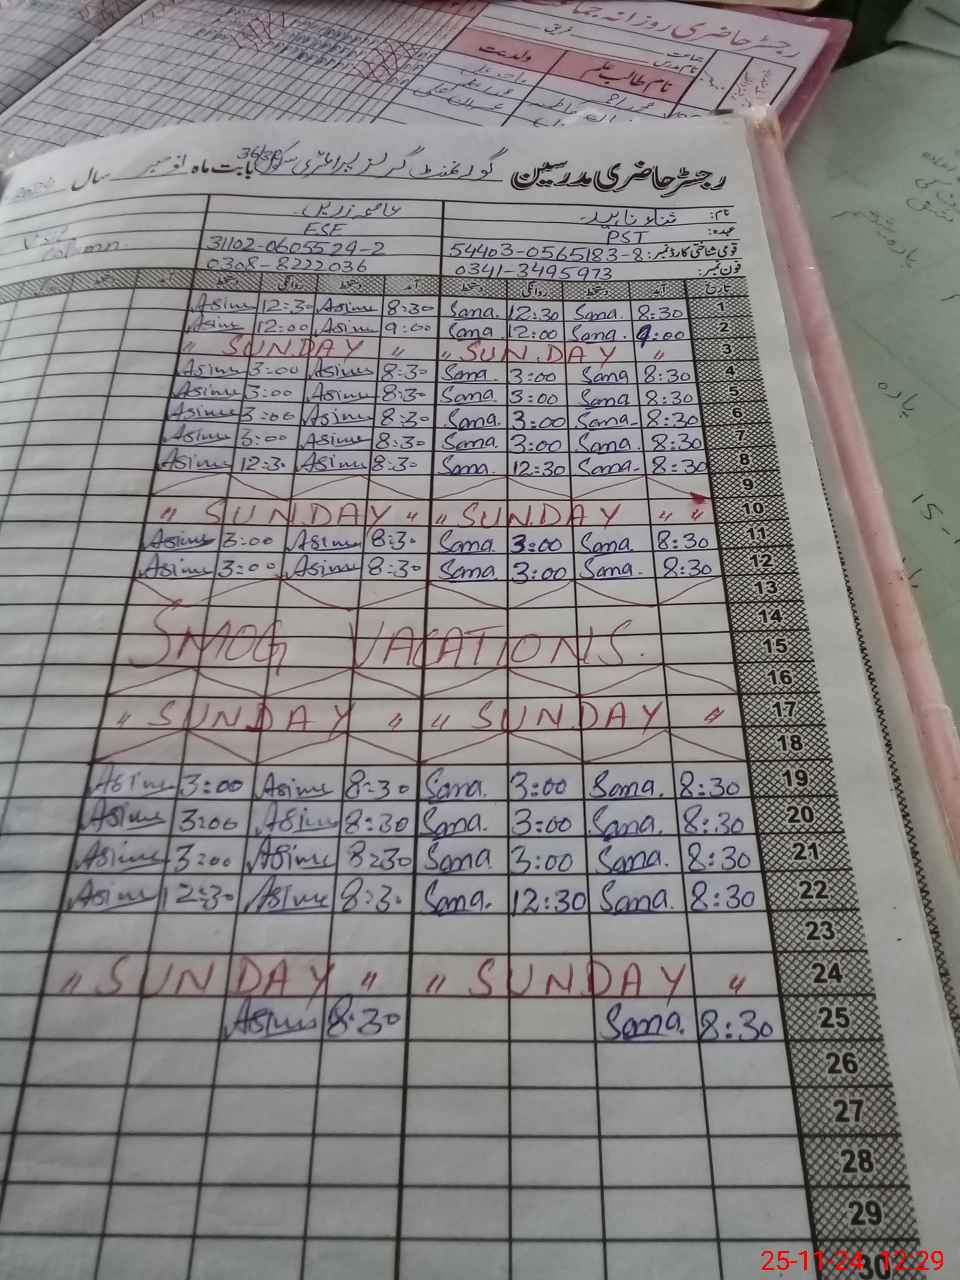 رجسٹر حاضری روزانہ جماعت
نام طالب علم ولدیت
رجسٹر حاضری مدرسین گورنمنٹ گرلز پرائمری سکول 36/3R بابت ماہ نومبر سال 2024
نام: ثناء ناہید عاصمہ زریں
عہدہ: PST ESE
قومی شناختی کارڈ نمبر: 54403-0565183-8 31102-0605524-2 Column
فون نمبر: 0341-3495973 0308-8222036
تاریخ آمد دستخط روانگی دستخط آمد دستخط روانگی دستخط
1 8:30 Sana. 12:30 Sana. 8:30 Asima 12:30 Asima
2 9:00 Sana. 12:00 Sana. 9:00 Asima 12:00 Asima
3 " SUNDAY " " SUNDAY "
4 8:30 Sana 3:00 Sana. 8:30 Asima 3:00 Asima
5 8:30 Sana. 3:00 Sana. 8:30 Asima 3:00 Asima
6 8:30 Sana- 3:00 Sana. 8:30 Asima 3:00 Asima
7 8:30 Sana. 3:00 Sana. 8:30 Asima 3:00 Asima
8 8:30 Sana- 12:30 Sana. 8:30 Asima 12:30 Asima
9
10 " SUNDAY " " SUNDAY " "
11 8:30 Sana. 3:00 Sana. 8:30 Asima 3:00 Asima
12 8:30 Sana. 3:00 Sana. 8:30 Asima 3:00 Asima
13
14
15 SMOG VACATIONS.
16
17 " SUNDAY " " SUNDAY "
18
19 8:30 Sana. 3:00 Sana. 8:30 Asima 3:00 Asima
20 8:30 Sana. 3:00 Sana. 8:30 Asima 3:00 Asima
21 8:30 Sana. 3:00 Sana 8:30 Asima 3:00 Asima
22 8:30 Sana. 12:30 Sana. 8:30 Asima 12:30 Asima
23
24 " SUNDAY " " SUNDAY "
25 8:30 Sana. 8:30 Asima
26
27
28
29
30
25-11-24 12:29